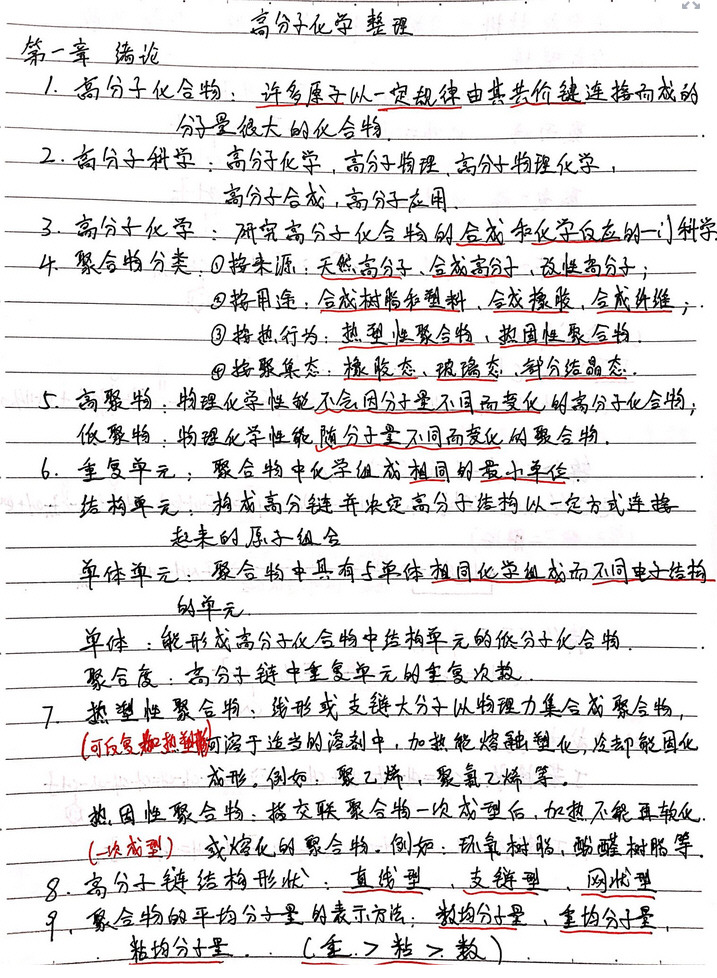 高分子化学 整理
第一章 绪论
1. 高分子化合物：许多原子以一定规律由其共价键连接而成的
分子量很大的化合物.
2. 高分子科学：高分子化学，高分子物理、高分子物理化学，
高分子合成，高分子应用.
3. 高分子化学：研究高分子化合物的合成和化学反应的一门科学.
4. 聚合物分类：①按来源：天然高分子、合成高分子、改性高分子；
②按用途：合成树脂和塑料、合成橡胶、合成纤维；
③按热行为：热塑性聚合物、热固性聚合物.
④按聚集态：橡胶态、玻璃态、部分结晶态.
5. 高聚物：物理化学性能不会因分子量不同而变化的高分子化合物；
低聚物：物理化学性能随分子量不同而变化的聚合物.
6. 重复单元：聚合物中化学组成相同的最小单位.
结构单元：构成高分链并决定高分子结构以一定方式连接
起来的原子组合
单体单元：聚合物中具有与单体相同化学组成而不同电子结构
的单元.
单体：能形成高分子化合物中结构单元的低分子化合物.
聚合度：高分子链中重复单元的重复次数.
7. 热塑性聚合物：线形或支链大分子以物理力集合成聚合物，
(可反复加热塑形)可溶于适当的溶剂中，加热能熔融塑化，冷却能固化
成形。例如：聚乙烯，聚氯乙烯等。
热固性聚合物：指交联聚合物一次成型后，加热不能再软化
(一次成型) 或熔化的聚合物。例如：环氧树脂，酚醛树脂等.
8. 高分子链结构形状：直线型、支链型、网状型
9. 聚合物的平均分子量的表示方法：数均分子量、重均分子量，
粘均分子量. (重 > 粘 > 数)